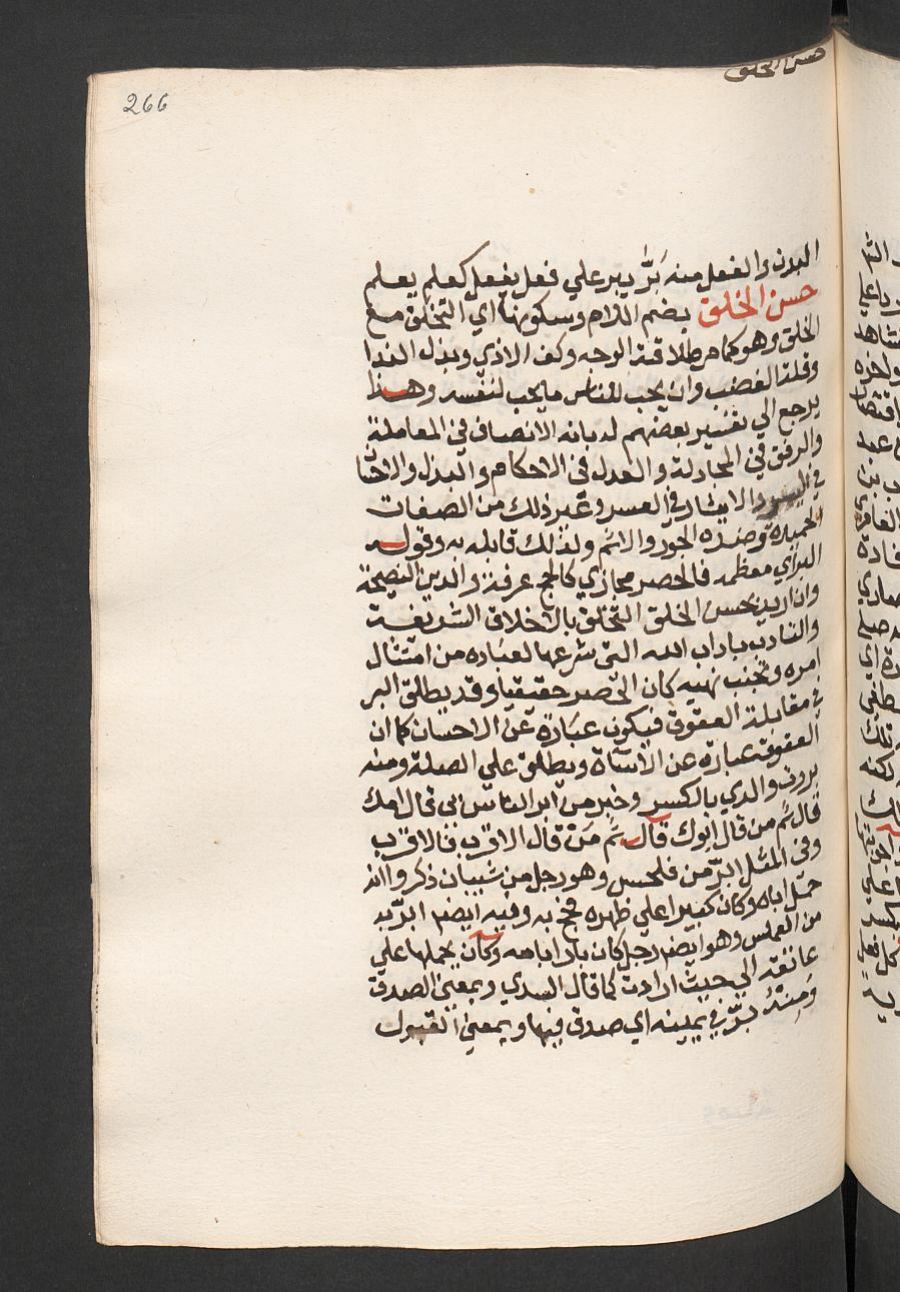 حسن الخلق
266
البدن والفعل منه بَرَّ يبر علي فعل يفعل كعلم يعلم
حسن الخلق بضم اللام وسكونها اي التخلق مع
الخلق وهو كما مر طلاقة الوجه وكف الاذي وبذل الندا
وقلة الغضب وان يحب للناس ما يحب لنفسه وهذا
يرجع الي تفسير بعضهم له بانه الانصاف في المعاملة
والرفق في المجادلة والعدل في الاحكام والبذل والاحسا
في اليسر والايثار في العسر وغير ذلك من الصفات
الحميدة وضده الجور والاثم ولذلك قابله به وقوله
البر اي معظمه فالحصر مجازي كالحج عرفة والدين النصيحة
وان اريد بحسن الخلق التخلق بالاخلاق الشريفة
والتادب باداب الله التي شرعها لعباده من امتثال
امره وتجنب نهيه كان الحصر حقيقيا وقد يطلق البر
في مقابلة العقوق فيكون عبارة عن الاحسان كما ان
العقوق عبارة عن الاساة ويطلق علي الصلة ومنه
بررت والدي بالكسر وخبر من ابر الناس بي قال امك
قال ثم من قال ابوك قال ثم مَن قال الاقرب فالاقرب
وفي المثل ابرّ من فلحس وهو رجل من شيبان ذكروا انه
حمل اباه وكان كبيرا علي ظهره فحج به وفيه ايضا ابر به
من العملس وهو ايضا رجل كان بارا بامه وكان يحملها علي
عاتقه الي حيث ارادت كما قال السدي وبمعني الصدق
وَمِنْهُ بَرَّ في يمينه اي صدق فيها وبمعني القبول